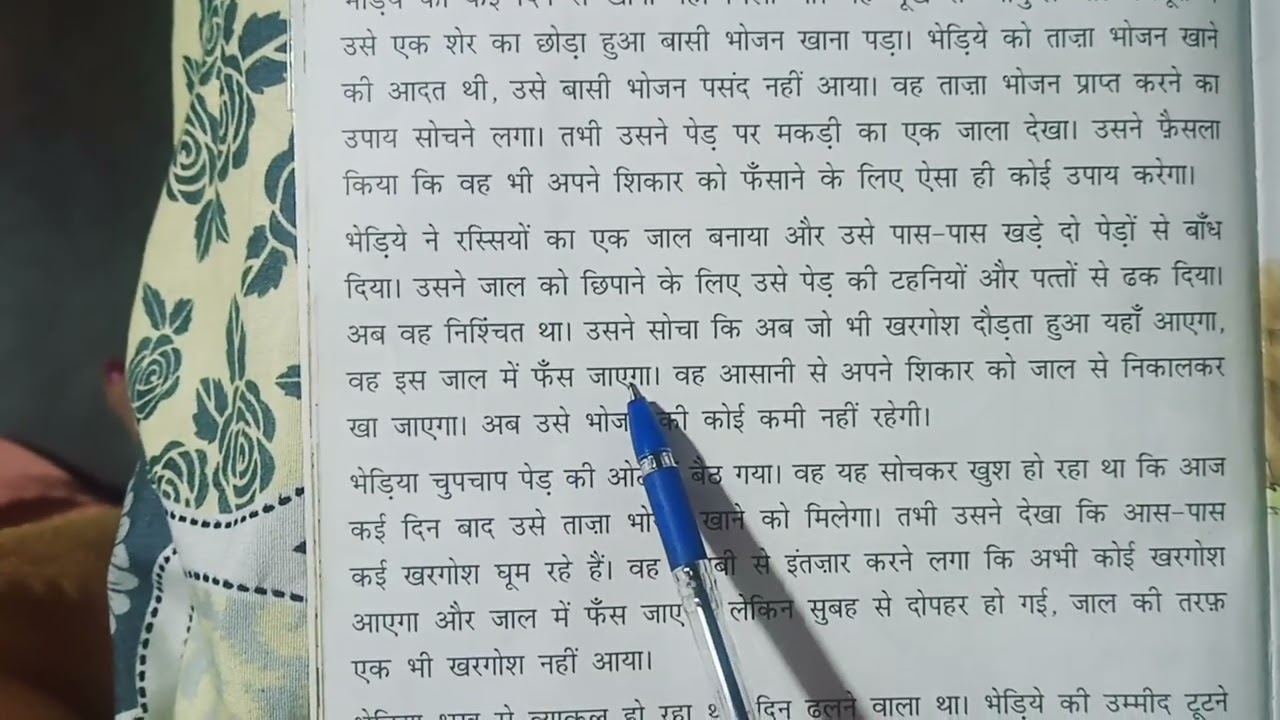 उसे एक शेर का छोड़ा हुआ बासी भोजन खाना पड़ा। भेड़िये को ताज़ा भोजन खाने
की आदत थी, उसे बासी भोजन पसंद नहीं आया। वह ताज़ा भोजन प्राप्त करने का
उपाय सोचने लगा। तभी उसने पेड़ पर मकड़ी का एक जाला देखा। उसने फ़ैसला
किया कि वह भी अपने शिकार को फँसाने के लिए ऐसा ही कोई उपाय करेगा।
भेड़िये ने रस्सियों का एक जाल बनाया और उसे पास-पास खड़े दो पेड़ों से बाँध
दिया। उसने जाल को छिपाने के लिए उसे पेड़ की टहनियों और पत्तों से ढक दिया।
अब वह निश्चिंत था। उसने सोचा कि अब जो भी खरगोश दौड़ता हुआ यहाँ आएगा,
वह इस जाल में फँस जाएगा। वह आसानी से अपने शिकार को जाल से निकालकर
खा जाएगा। अब उसे की कोई कमी नहीं रहेगी।
भेड़िया चुपचाप पेड़ की बैठ गया। वह यह सोचकर खुश हो रहा था कि आज
कई दिन बाद उसे ताज़ा खाने को मिलेगा। तभी उसने देखा कि आस-पास
कई खरगोश घूम रहे हैं। वह से इंतज़ार करने लगा कि अभी कोई खरगोश
आएगा और जाल में फँस लेकिन सुबह से दोपहर हो गई, जाल की तरफ़
एक भी खरगोश नहीं आया।
हो रहा दिन ढलने वाला था। भेड़िये की उम्मीद टूटने